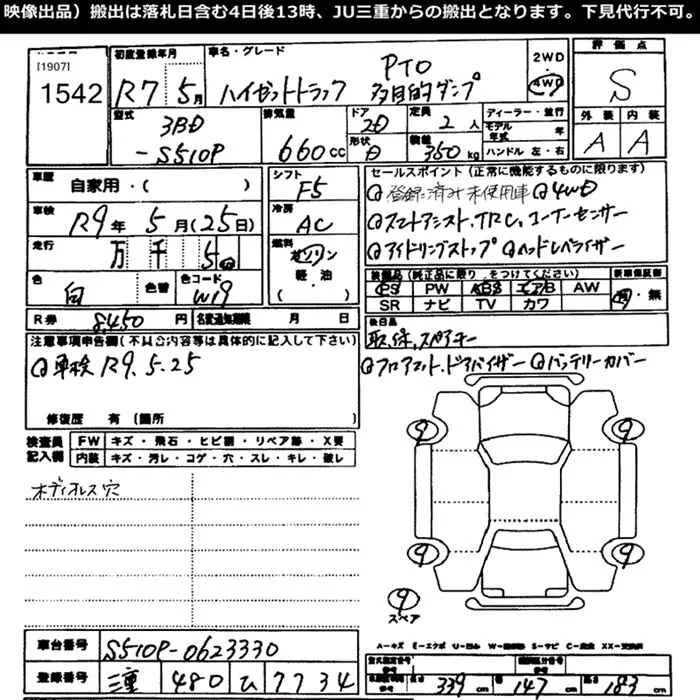 映像出品）搬出は落札日含む4日後13時、JU三重からの搬出となります。下見代行不可。
[1907]
1542
初度登録年月
R7年 5月
車名・グレード
ハイゼットトラック PTO 多目的ダンプ
2WD
4WD
評価点
S
型式
3BD
-S510P
排気量
660cc
ドア
2D
形状
定員
2人
積載
350kg
ディーラー・並行
モデル年式 年
ハンドル 左・右
外装 内装
A A
車歴
自家用・( )
シフト
F5
車検
R9年 5月(25日)
冷房
AC
走行
万 千 5
燃料
ガソリン
軽・油
( )
色
白
色替
色コード
W19
R券
8,450円
名変通知期限 月 日
セールスポイント(正常に機能するものに限ります)
登録済み未使用車 4WD
スマートアシスト、TRC、コーナーセンサー
アイドリングストップ ヘッドレベライザー
装備品(純正品に限り、をつけてください)
PS PW ABS エアB AW
SR ナビ TV カワ
新車保証書
有・無
後日品
取、保、スペアキー
フロアマット、ドアバイザー バッテリーカバー
注意事項申告欄(不具合内容等は具体的に記入して下さい)
車検 R9.5.25
修復歴 有(箇所
検査員記入欄
FW キズ・飛石・ヒビ割・リペア跡・X要
内装 キズ・汚レ・コゲ・穴・スレ・キレ・破レ
ボディオレス穴
9 9
9 9
9
スペア
A－キズ E－エクボ U－凹ミ W－補修跡 S－サビ C－腐食 XX－交換済
車台番号
S510P-0623330
登録番号
三重 480 ひ 7734
型式指定番号
類別区分番号
長さ 339cm 幅 147cm 高さ 193cm